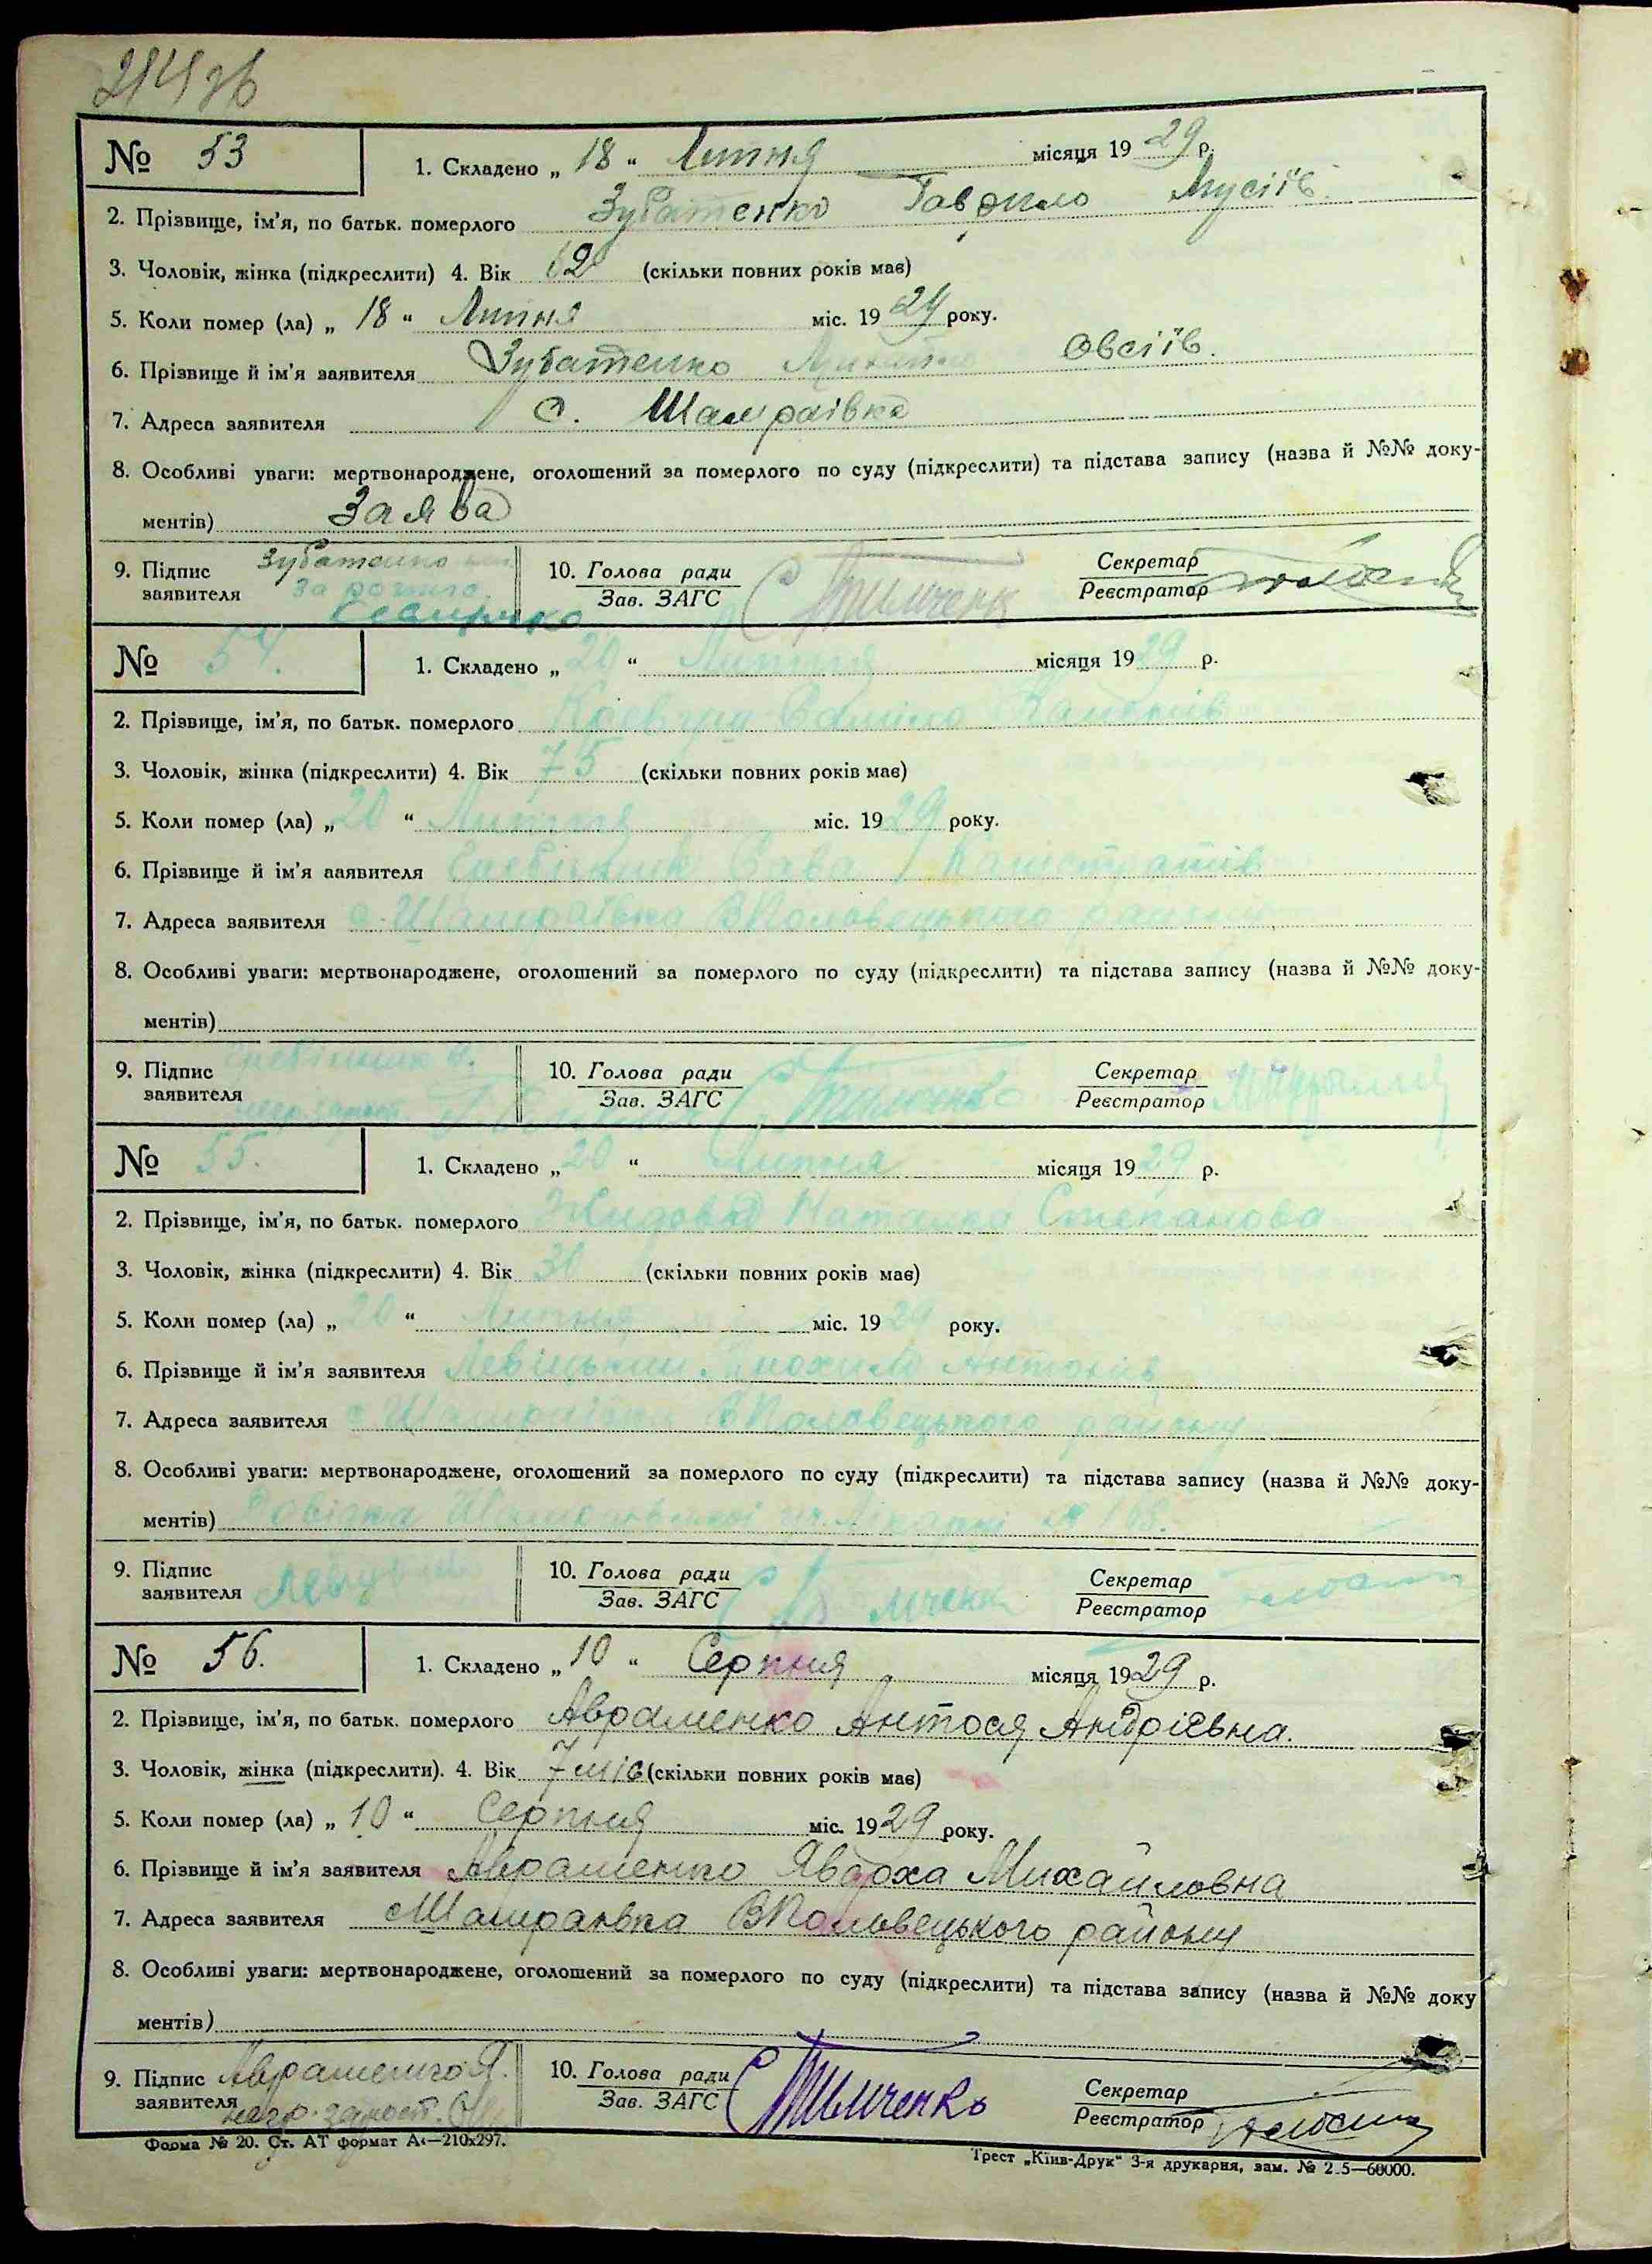 214 зв
№ 53
1. Складено „ 18 “ Липня місяця 1929 р.
2. Прізвище, ім'я, по батьк. померлого Зубатенко Гаврило Мусіїв.
3. Чоловік, жінка (підкреслити) 4. Вік 62 (скільки повних років має)
5. Коли помер (ла) „ 18 “ Липня міс. 1929 року.
6. Прізвище й ім'я заявителя Зубатенко Овсіїв.
7. Адреса заявителя с. Шамраївка
8. Особливі уваги: мертвонароджене, оголошений за померлого по суду (підкреслити) та підстава запису (назва й №№ доку-
ментів) Заява
9. Підпис заявителя Зубатенко
10. Голова ради
Зав. ЗАГС
Секретар
Реєстратор
№ 54.
1. Складено „ 20 “ Липня місяця 1929 р.
2. Прізвище, ім'я, по батьк. померлого
3. Чоловік, жінка (підкреслити) 4. Вік 75 (скільки повних років має)
5. Коли помер (ла) „ 20 “ Липня міс. 1929 року.
6. Прізвище й ім'я заявителя Сава Калістратів
7. Адреса заявителя с. Шамраївка ВПоловецького району
8. Особливі уваги: мертвонароджене, оголошений за померлого по суду (підкреслити) та підстава запису (назва й №№ доку-
ментів)
9. Підпис заявителя
10. Голова ради
Зав. ЗАГС
Секретар
Реєстратор
№ 55.
1. Складено „ 20 “ Липня місяця 1929 р.
2. Прізвище, ім'я, по батьк. померлого Наталка Степанова
3. Чоловік, жінка (підкреслити) 4. Вік 30 (скільки повних років має)
5. Коли помер (ла) „ 20 “ Липня міс. 1929 року.
6. Прізвище й ім'я заявителя Левіцький Антонів
7. Адреса заявителя с Шамраївка ВПоловецького району
8. Особливі уваги: мертвонароджене, оголошений за померлого по суду (підкреслити) та підстава запису (назва й №№ доку-
ментів) Довідка Шамраївської
9. Підпис заявителя
10. Голова ради
Зав. ЗАГС
Секретар
Реєстратор
№ 56.
1. Складено „ 10 “ Серпня місяця 1929 р.
2. Прізвище, ім'я, по батьк. померлого Авраменко Антося Андріївна.
3. Чоловік, жінка (підкреслити). 4. Вік 7 міс (скільки повних років має)
5. Коли помер (ла) „ 10 “ Серпня міс. 1929 року.
6. Прізвище й ім'я заявителя Авраменко Явдоха Михайловна
7. Адреса заявителя с Шамраівка ВПоловецького району
8. Особливі уваги: мертвонароджене, оголошений за померлого по суду (підкреслити) та підстава запису (назва й №№ доку
ментів)
9. Підпис заявителя Авраменко Я.
10. Голова ради
Зав. ЗАГС
Секретар
Реєстратор
Форма № 20. Ст. АТ формат А4—210х297.
Трест „Київ-Друк“ 3-я друкарня, зам. № 2.5—60000.